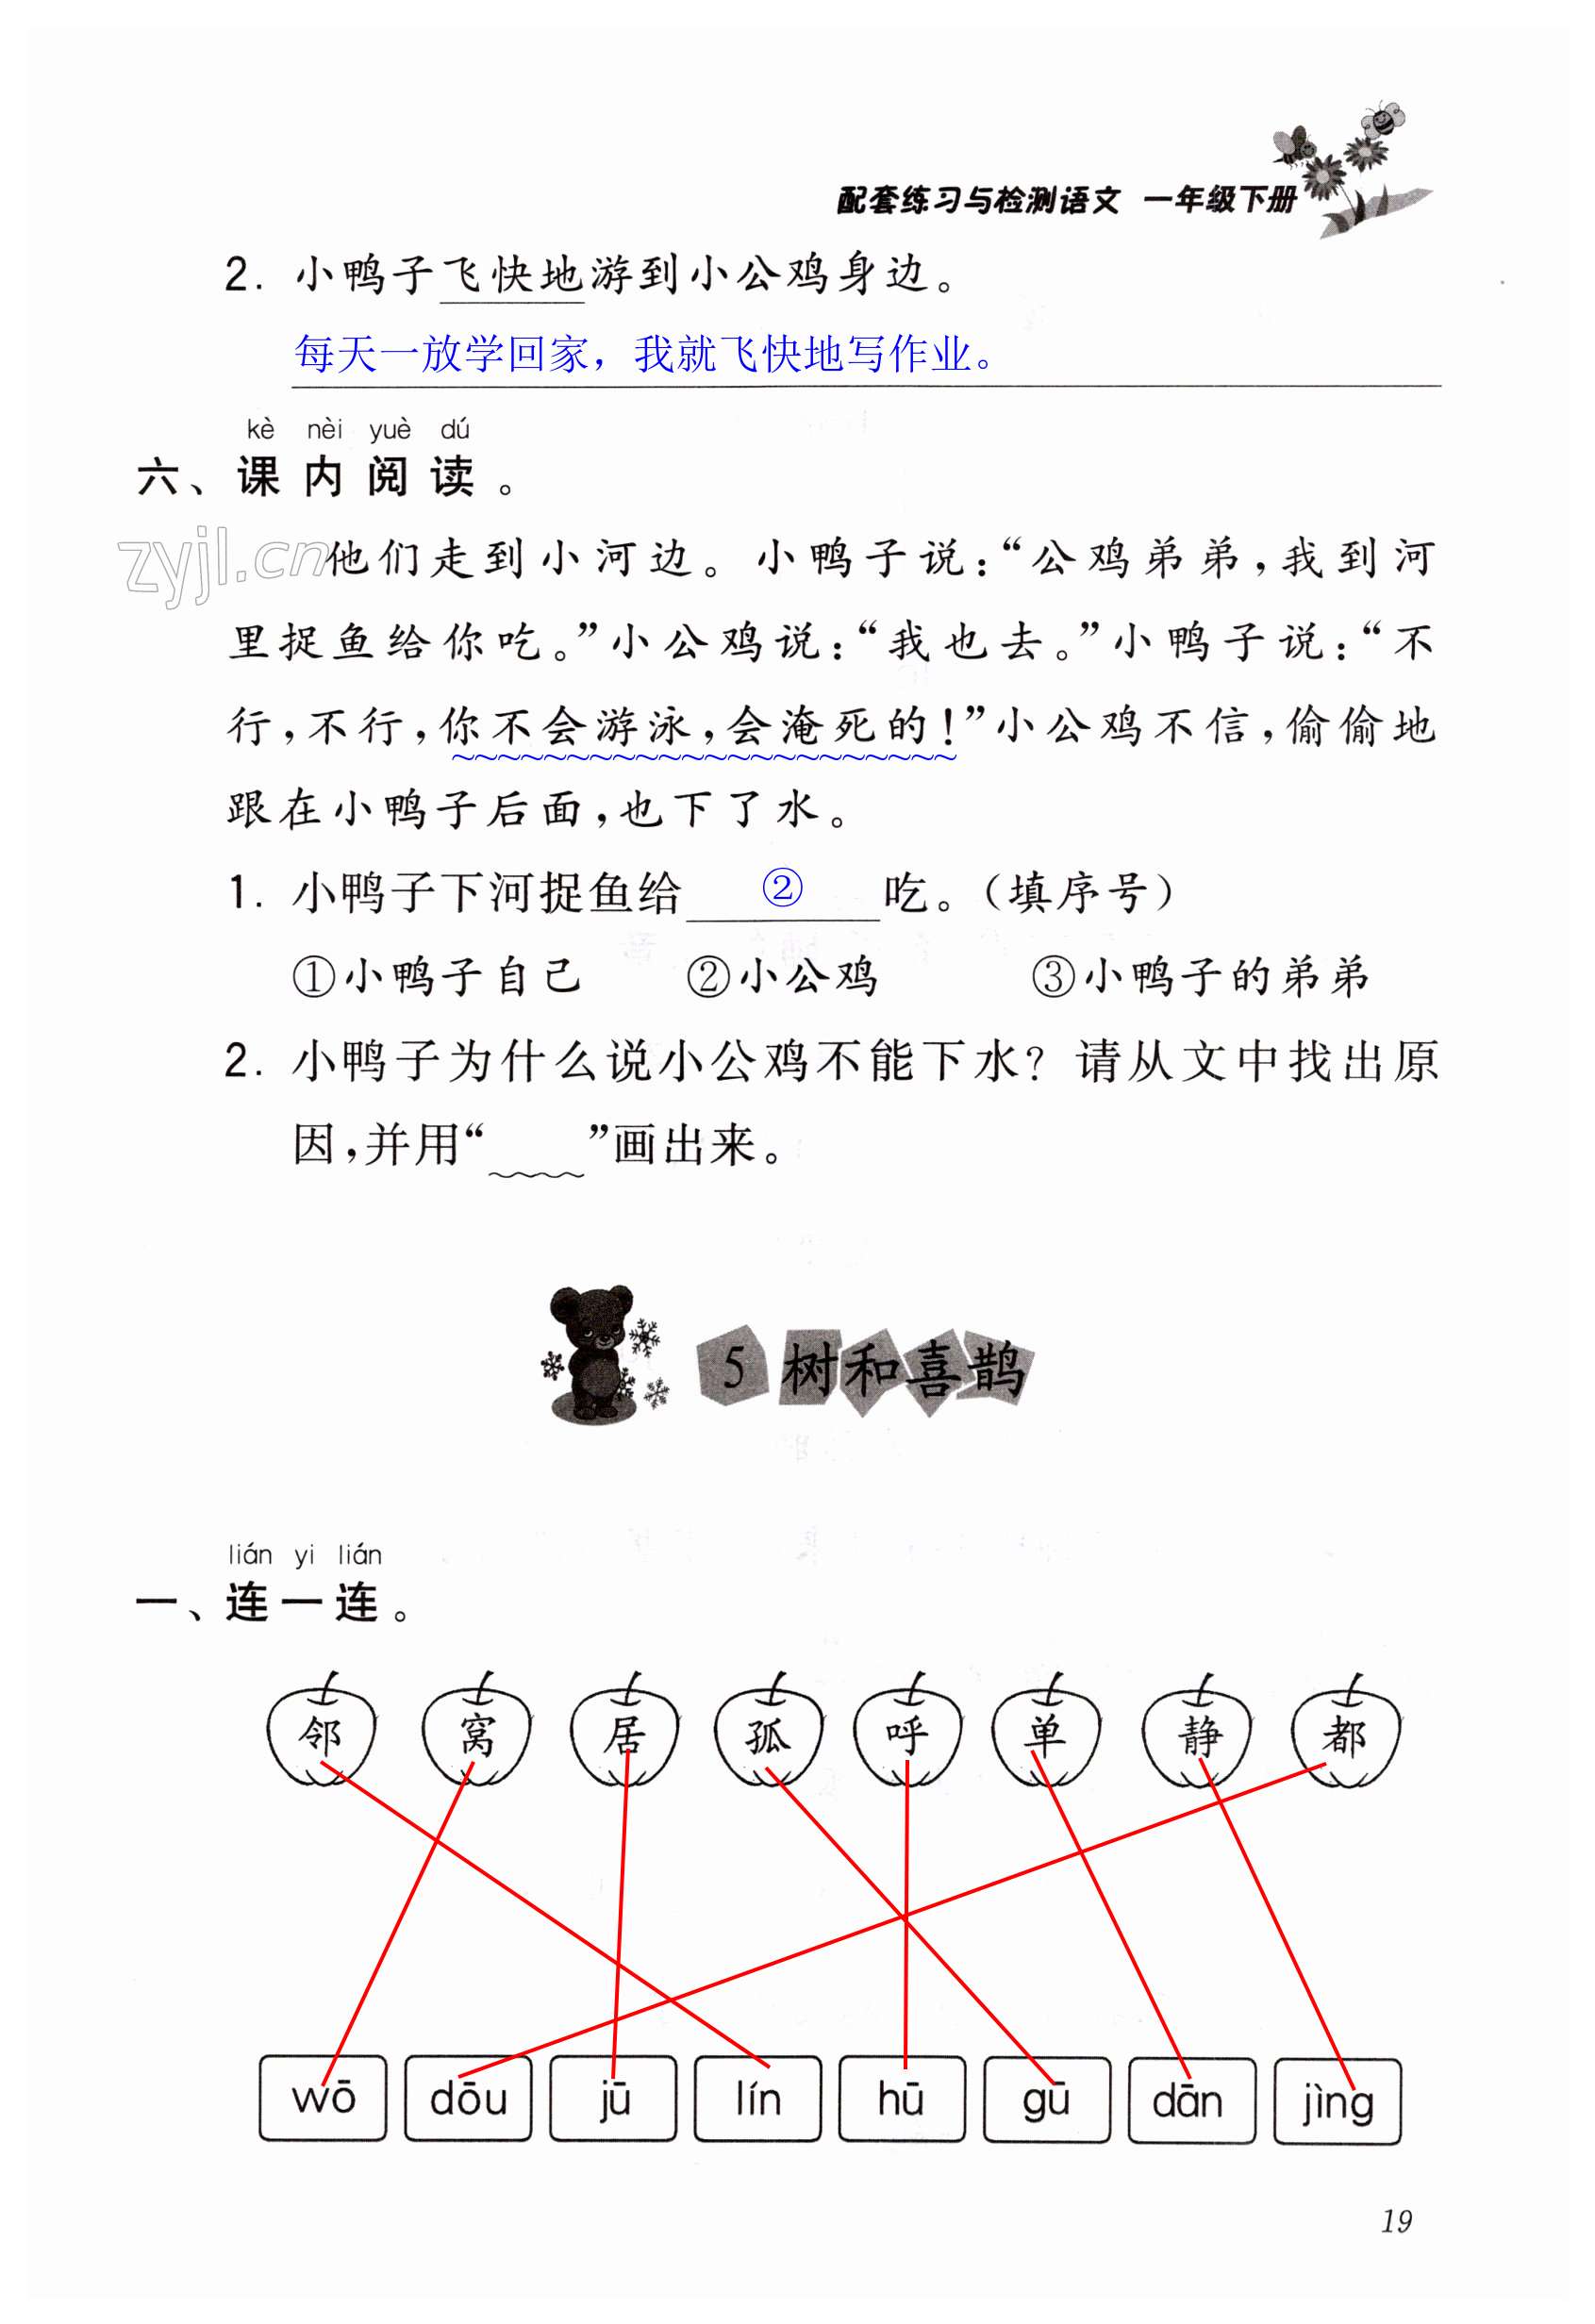 配套练习与检测语文 一年级下册
2. 小鸭子飞快地游到小公鸡身边。
每天一放学回家，我就飞快地写作业。
kè nèi yuè dú
六、课内阅读。
zyjl.cn
他们走到小河边。小鸭子说：“公鸡弟弟，我到河
里捉鱼给你吃。”小公鸡说：“我也去。”小鸭子说：“不
行，不行，你不会游泳，会淹死的！”小公鸡不信，偷偷地
跟在小鸭子后面，也下了水。
1. 小鸭子下河捉鱼给 ② 吃。（填序号）
①小鸭子自己 ②小公鸡 ③小鸭子的弟弟
2. 小鸭子为什么说小公鸡不能下水？请从文中找出原
因，并用“ ”画出来。
5 树和喜鹊
lián yi lián
一、连一连。
邻 窝 居 孤 呼 单 静 都
wō dōu jū lín hū gū dān jìng
19